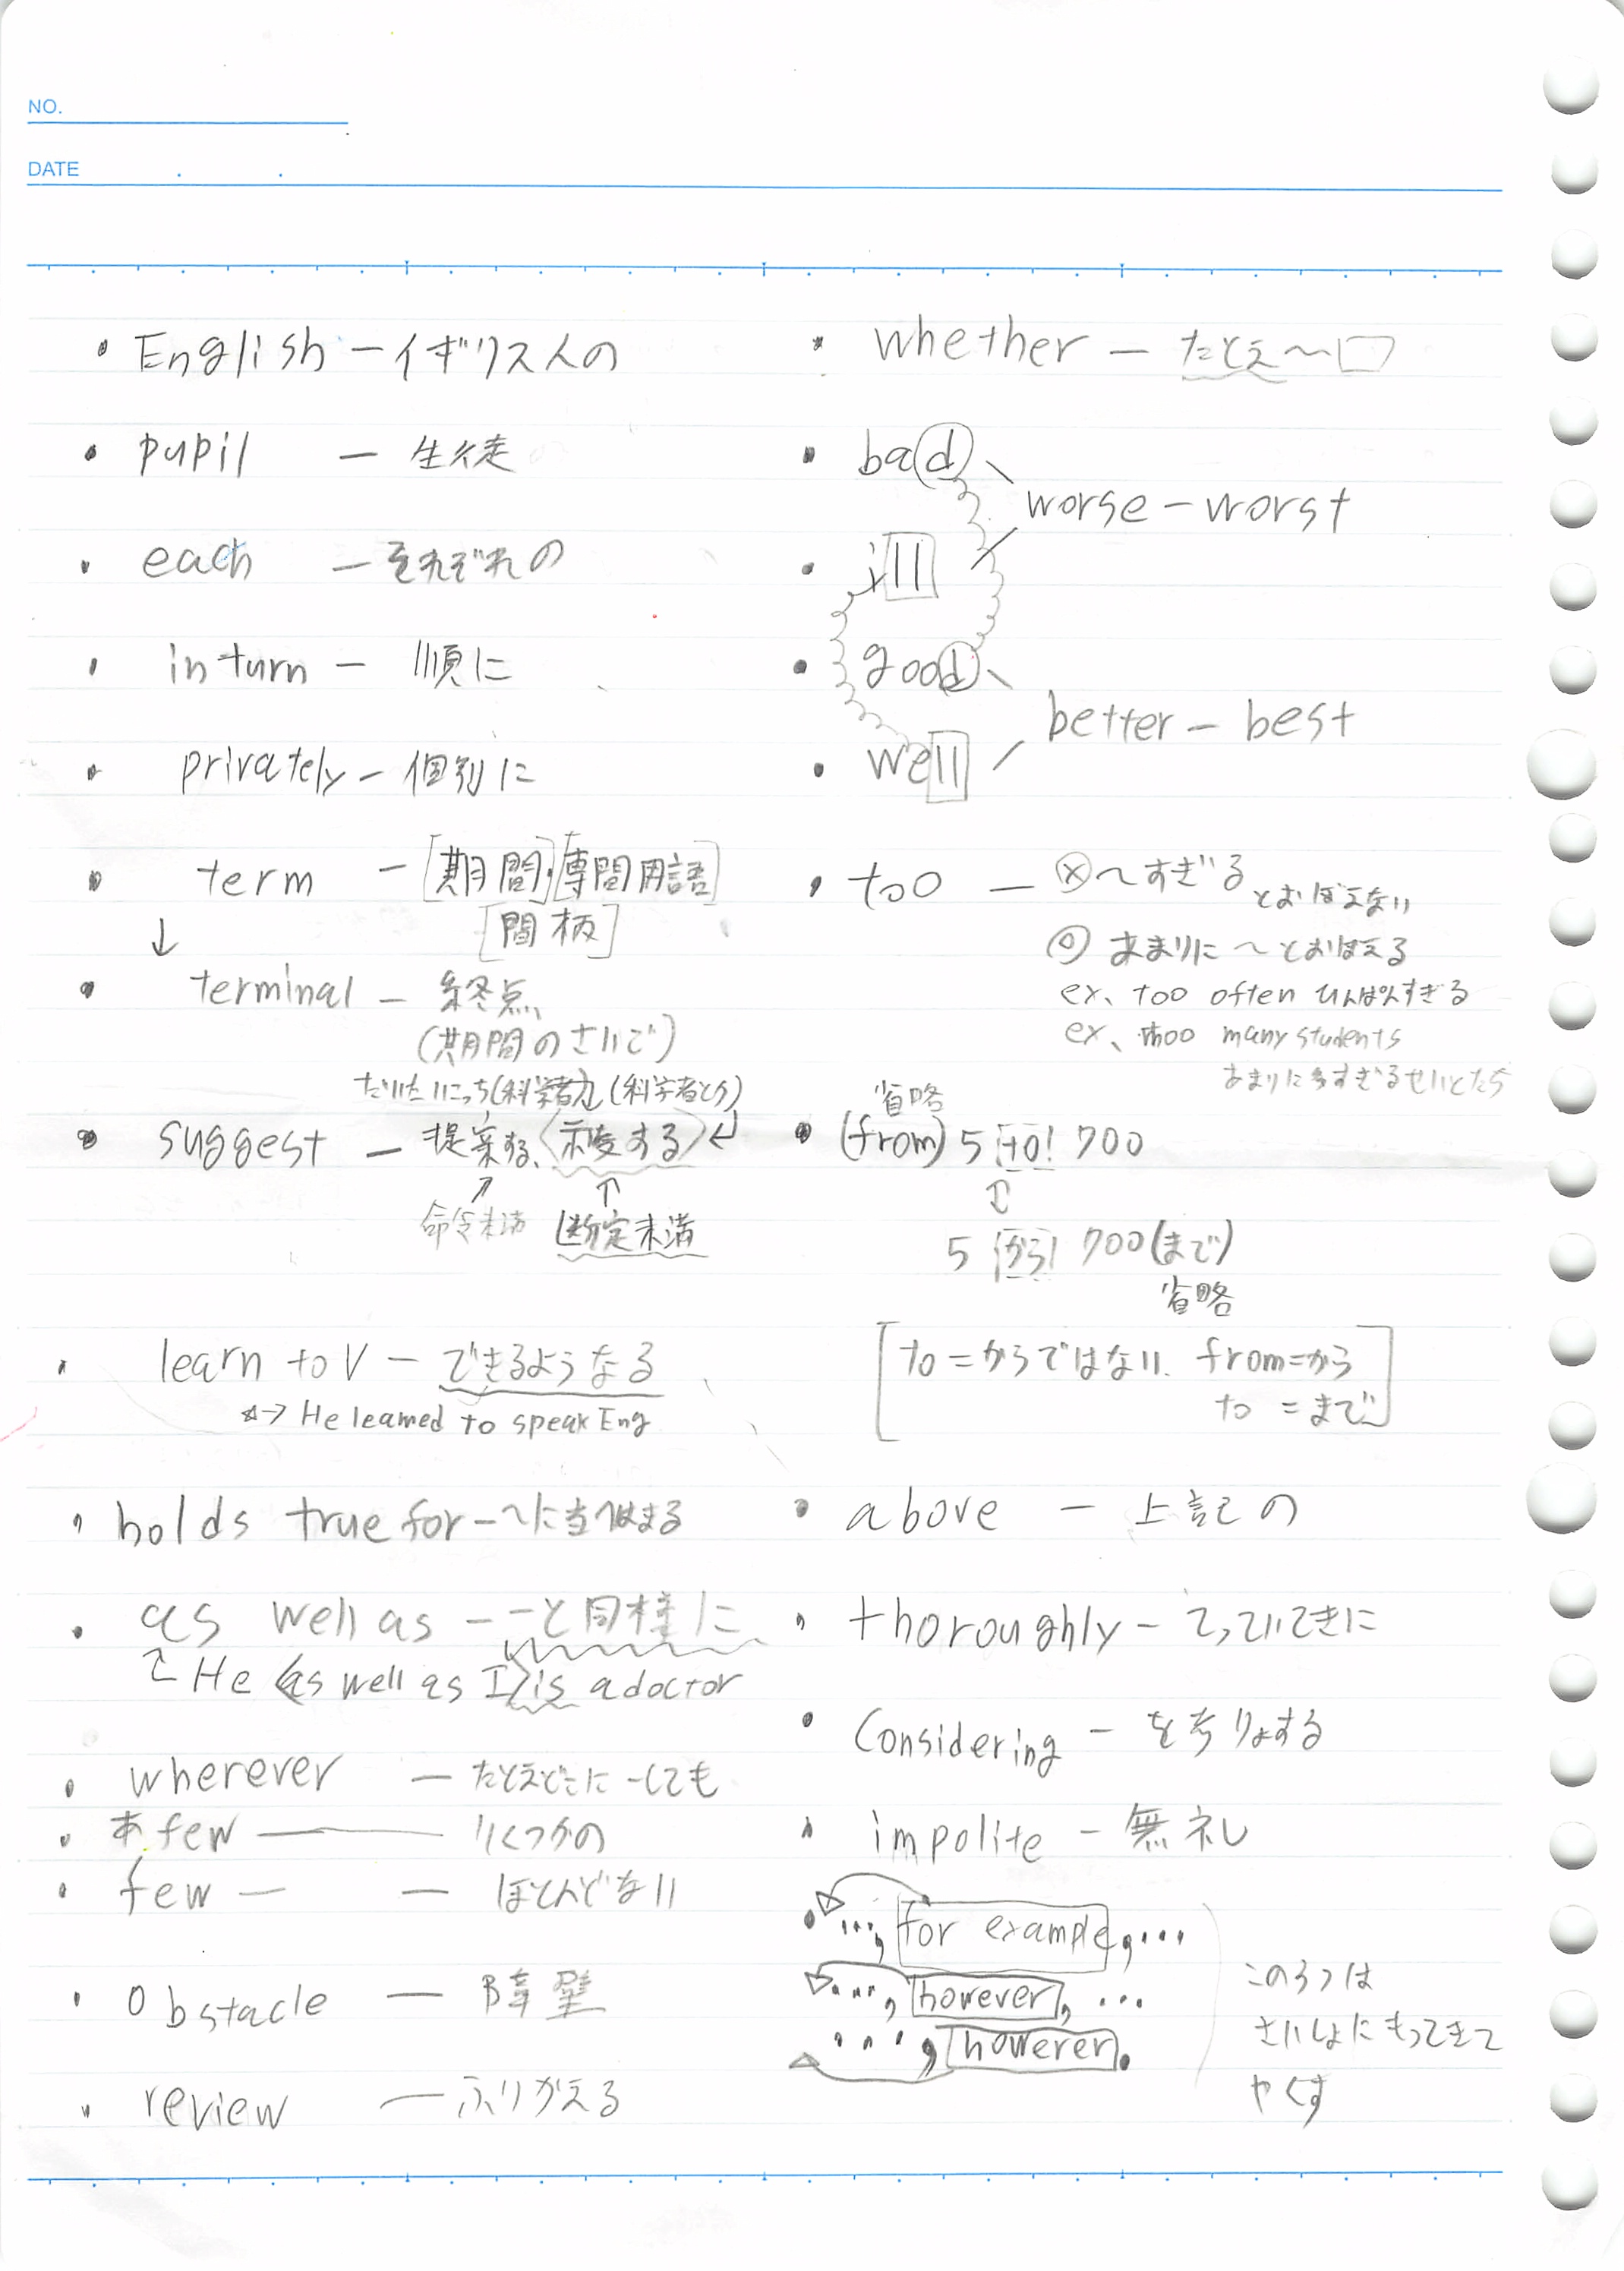 NO.
DATE
・English ー イギリス人の
・pupil ー 生徒
・each ー それぞれの
・in turn ー 順に
・privately ー 個別に
・term ー [期間]・[専間用語]
[間柄]
↓
・terminal ー 終点、
(期間のさいご)
だいたいこっち(科学者が) (科学者とか)
・suggest ー 提案する、〈示唆する〉↵
↗ ↑
命令未満 断定未満
・learn to V ー できるようなる
☆→ He learned to speak Eng
・holds true for ー 〜に当てはまる
・as well as ー ーと同様に
He 〈as well as I〉 is a doctor
・wherever ー たとえどこに ーしても
・a few ー いくつかの
・few ー ー ほとんどない
・obstacle ー 障壁
・review ー ふりかえる
・whether ー たとえ〜□
・bad
worse ー worst
・ill
・good
better ー best
・well
・too ー ⓧ〜すぎる とおぼえない
◎ あまりに 〜とおぼえる
ex、too often ひんぱんすぎる
ex、too many students
あまりに多すぎるせいとたち
省略
・(from) 5 to 700
5 から 700 (まで)
省略
[to = からではない. from = から
to = まで]
・above ー 上記の
・thoroughly ー てっていてきに
・Considering ー を考りょする
・impolite ー 無礼
・…, for example, …
…, however, …
…, however.
この3つは
さいしょにもってきて
やくす